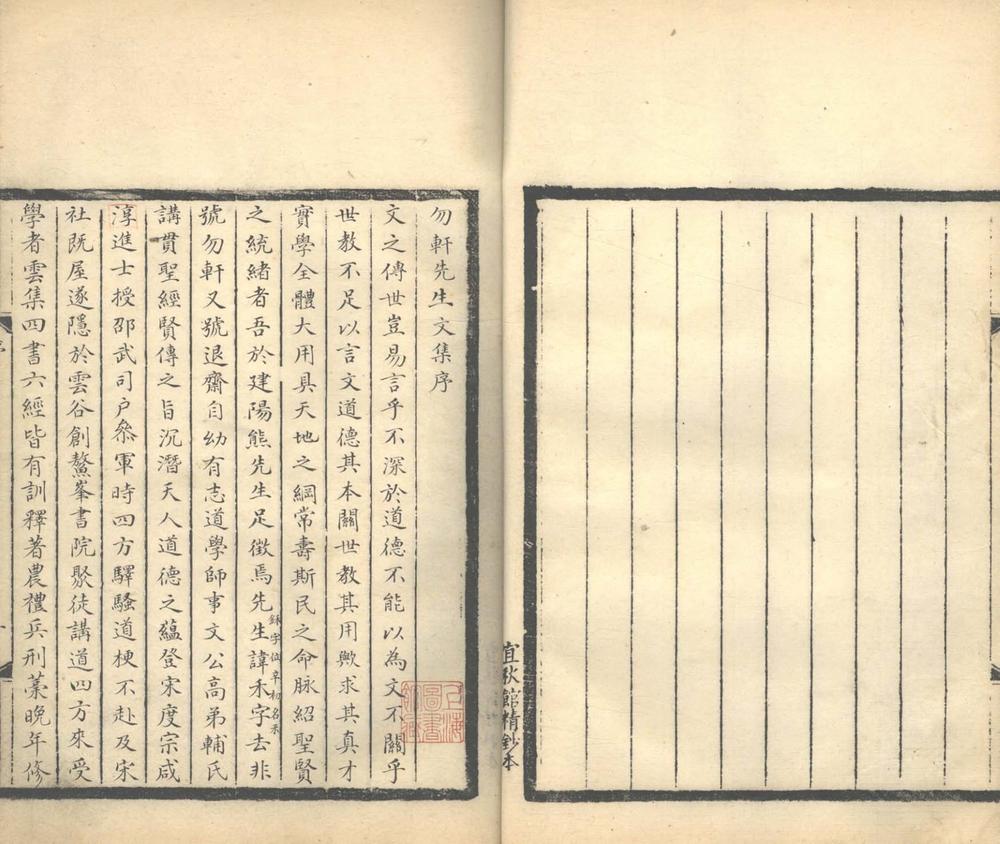 勿軒先生文集序
文之傳世豈易言乎不深於道德不能以為文不關乎
世教不足以言文道德其本關世教其用歟求其真才
實學全體大用具天地之綱常壽斯民之命脉紹聖賢
之統緒者吾於建陽熊先生足徵焉先生諱禾字去非
號勿軒又號退齋自幼有志道學師事文公高弟輔氏
講貫聖經賢傳之旨沉潛天人道德之蘊登宋度宗咸
淳進士授邵武司户叅軍時四方驛騷道梗不赴及宋
社既屋遂隱於雲谷創鰲峯書院聚徒講道四方來受
學者雲集四書六經皆有訓釋著農禮兵刑藁晚年修
宜秋館精鈔本